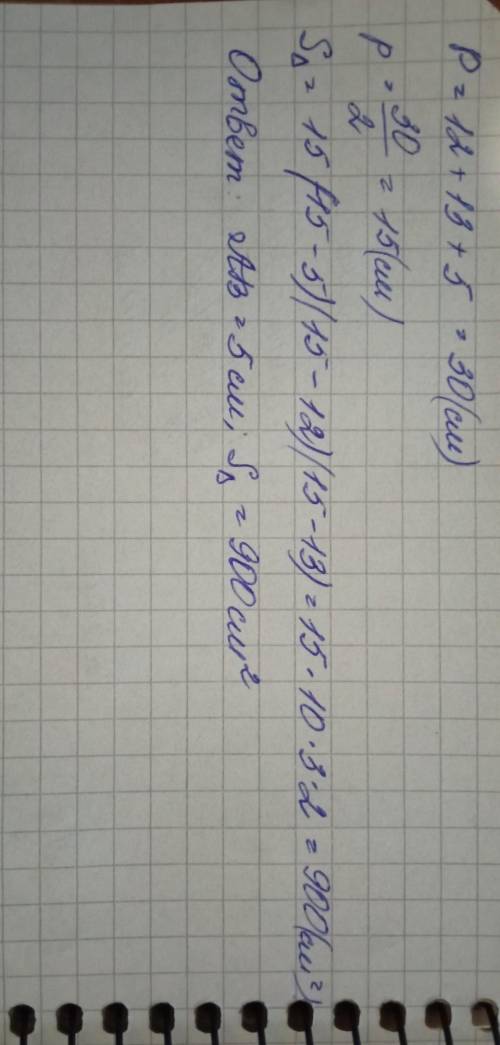 P = 12 + 13 + 5 = 30 (см)
p = 30/2 = 15 (см)
S∆ = 15 (15 - 5)(15 - 12)(15 - 13) = 15 · 10 · 3 · 2 = 900 (см²)
Ответ: AB = 5 см; S∆ = 900 см²